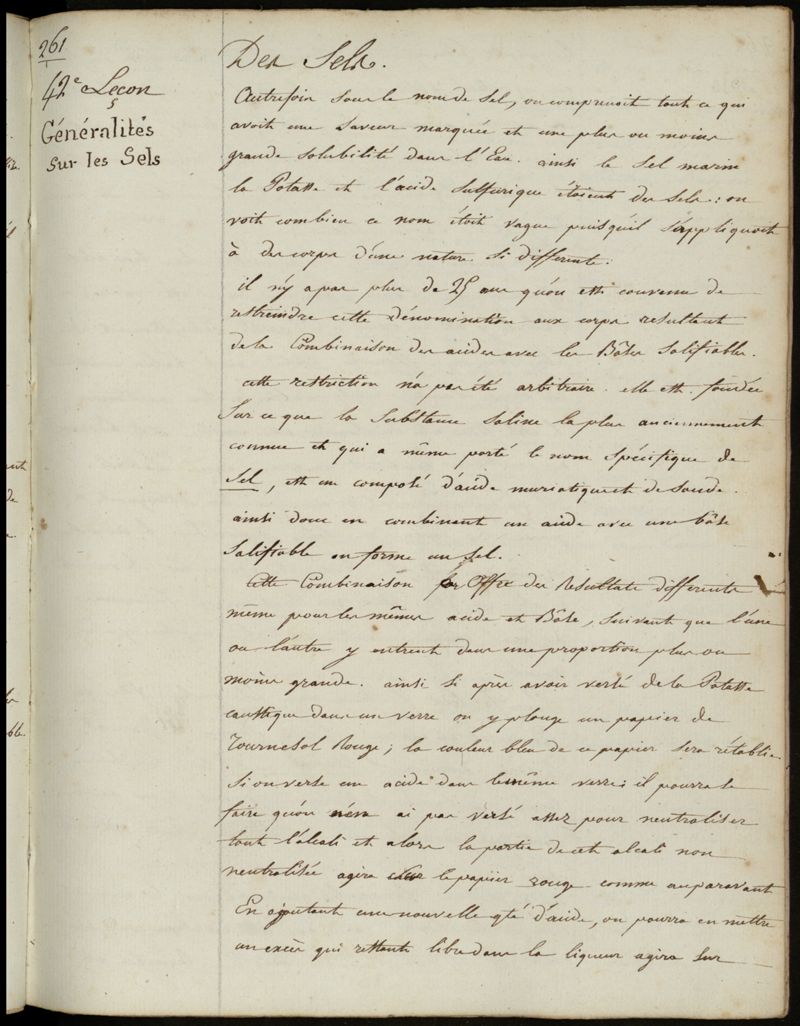 261
42e Leçon
Généralités
sur les Sels
Des Sels.
Autrefois sous le nom de Sel, on comprenoit tout ce qui
avoit une Saveur marquée et une plus ou moins
grande solubilité dans l'Eau. ainsi le Sel marin
la Potasse et l'acide Sulfurique étoient des Sels : on
voit combien ce nom étoit vague puisqu'il s'appliquoit
à des corps d'une nature si différente.
il n'y a pas plus de 25 ans qu'on est convenu de
restreindre cette dénomination aux corps resultant
de la Combinaison des acides avec les Bâses Salifiables.
cette restriction n'a pas été arbitraire. elle est fondée
Sur ce que la Substance saline la plus anciennement
connue et qui a même porté le nom Spécifique de
Sel, est un composé d'acide muriatique et de Soude.
ainsi donc en combinant un acide avec une bâse
Salifiable on forme un Sel.
Cette Combinaison Offre des Résultats différents
même pour les mêmes acide et Bâse, suivant que l'une
ou l'autre y entrent dans une proportion plus ou
moins grande. ainsi si après avoir versé de la Potasse
caustique dans un verre on y plonge un papier de
Tournesol Rouge ; la couleur bleu de ce papier sera rétablie.
Si on verse un acide dans le même verre ; il pourra se
faire qu'on n'en ai pas versé assez pour neutraliser
tout l'alcali et alors la partie de cet alcali non
neutralisée agira sur le papier rouge comme auparavant
En ajoutant une nouvelle qté d'acide, on pourra en mettre
un excès qui restant libre dans la liqueur agira sur